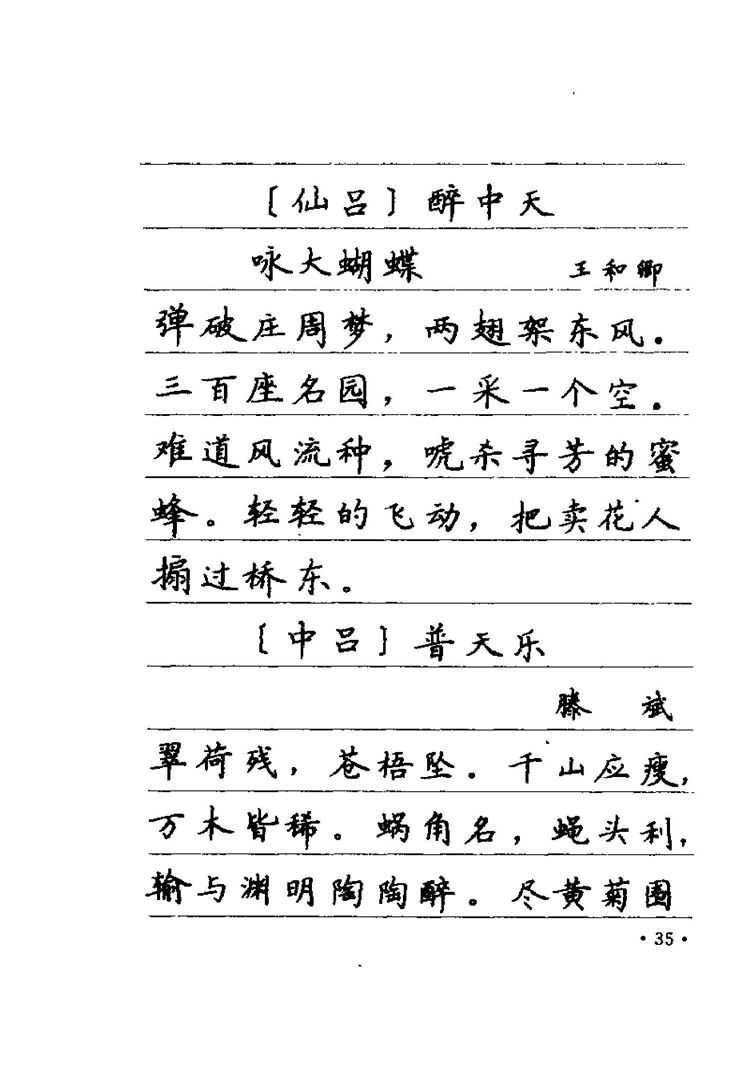 〔仙吕〕醉中天
咏大蝴蝶 王和卿
弹破庄周梦，两翅架东风。
三百座名园，一采一个空。
难道风流种，唬杀寻芳的蜜
蜂。轻轻的飞动，把卖花人
搧过桥东。
〔中吕〕普天乐
滕 斌
翠荷残，苍梧坠。千山应瘦，
万木皆稀。蜗角名，蝇头利，
输与渊明陶陶醉。尽黄菊围
·35·